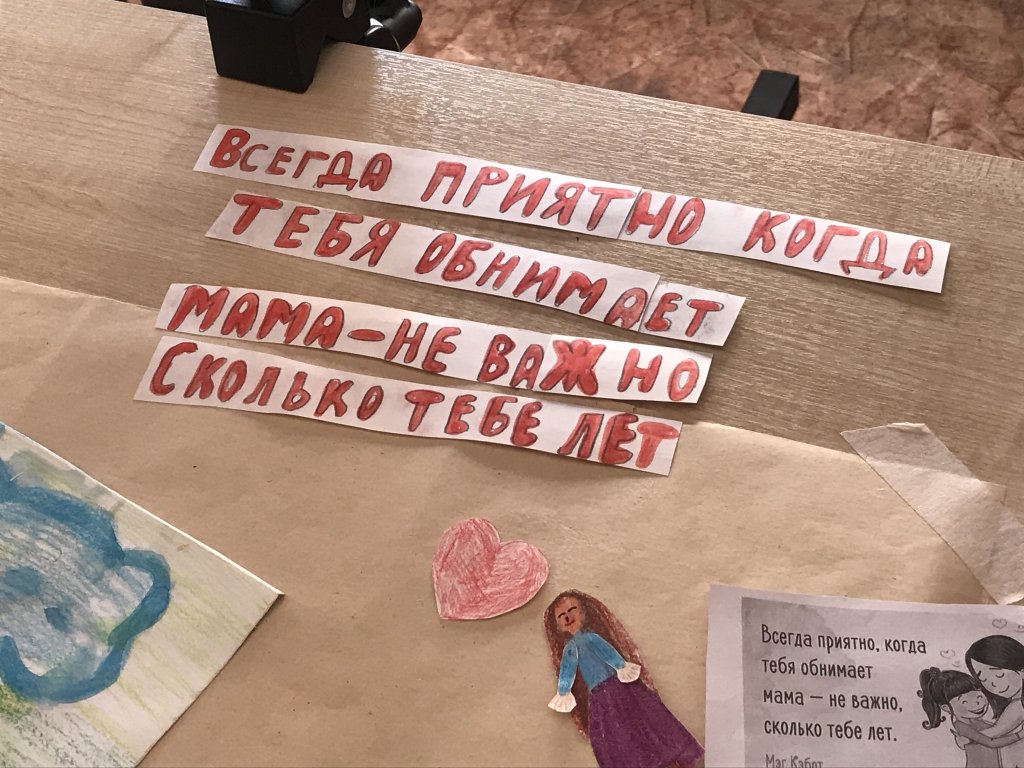 Всегда приятно когда
тебя обнимает
мама-не важно
Сколько тебе лет
Всегда приятно, когда
тебя обнимает
мама — не важно,
сколько тебе лет.
Мэг Кэбот